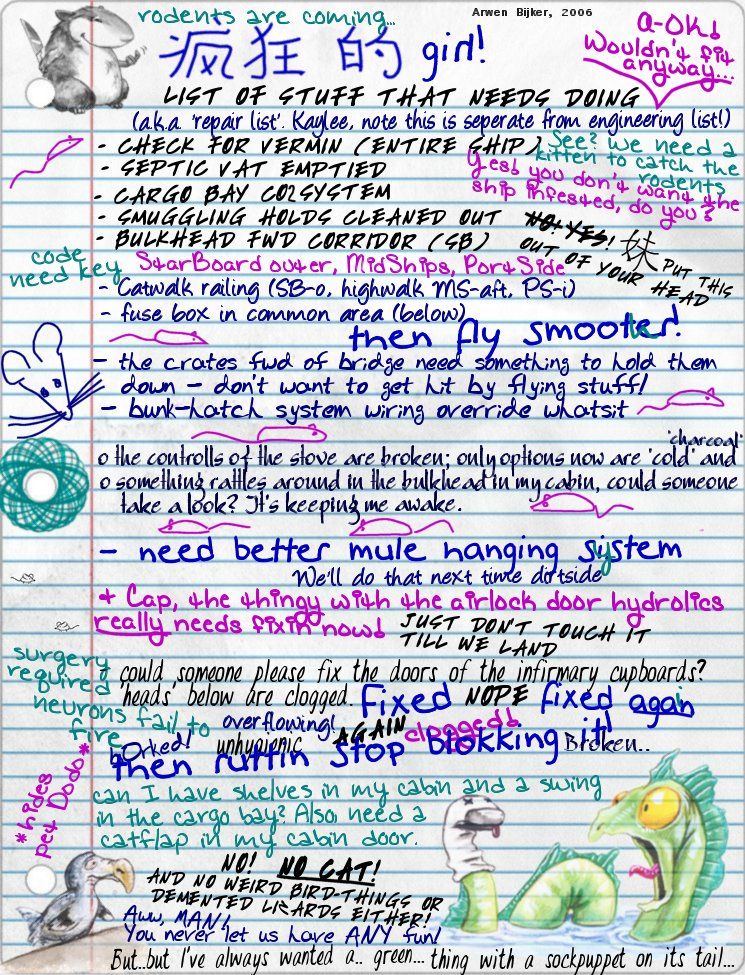 rodents are coming...
Arwen Bijker, 2006
疯狂的 girl!
A-OK!
Wouldn't fit
anyway...
LIST OF STUFF THAT NEEDS DOING
(a.k.a. 'repair list'. Kaylee, note this is seperate from engineering list!)
- CHECK FOR VERMIN (ENTIRE SHIP)
See? We need a
kitten to catch the
rodents
- SEPTIC VAT EMPTIED
Yes! you don't want the
ship infested, do you?
- CARGO BAY CO2SYSTEM
- SMUGGLING HOLDS CLEANED OUT
NO! YES!
- BULKHEAD FWD CORRIDOR (SB)
妹 PUT THIS
OUT OF YOUR HEAD
code
need key
StarBoard outer, MidShips, PortSide
- Catwalk railing (SB-o, highwalk MS-aft, PS-i)
- fuse box in common area (below)
then fly smooter!
- the crates fwd of bridge need something to hold them
down - don't want to get hit by flying stuff!
- bunk-hatch system wiring override whatsit
'charcoal'
o the controlls of the stove are broken; only options now are 'cold' and
o something rattles around in the bulkhead in my cabin, could someone
take a look? It's keeping me awake.
- need better mule hanging siystem
We'll do that next time dirtside
+ Cap, the thingy with the airlock door hydrolics
really needs fixin now!
JUST DON'T TOUCH IT
TILL WE LAND
surgery
required
neurons fail to
fire
could someone please fix the doors of the infirmary cupboards?
'heads' below are clogged. Fixed NOPE fixed again
overflowing!
borked! unhygienic AGAIN clogged!
then ruttin stop blokking it! Broken..
*hides
pet Dodo*
can I have shelves in my cabin and a swing
in the cargo bay? Also, need a
catflap in my cabin door.
NO! NO CAT!
AND NO WEIRD BIRD-THINGS OR
DEMENTED LIZARDS EITHER!
Aww, MAN!
You never let us have ANY fun!
But..but I've always wanted a.. green... thing with a sockpuppet on its tail...